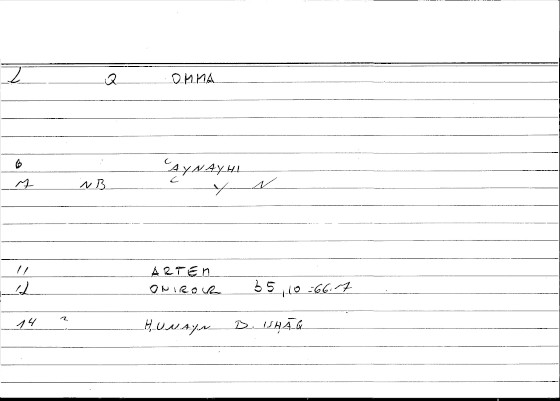 2 Q OMMA
6 ʿAYNAYHI
7 NB ʿ Y N
11 ARTEM
12 ONIROCR 65,10 = 66.7
14 ḤUNAYN B. ISḤĀQ